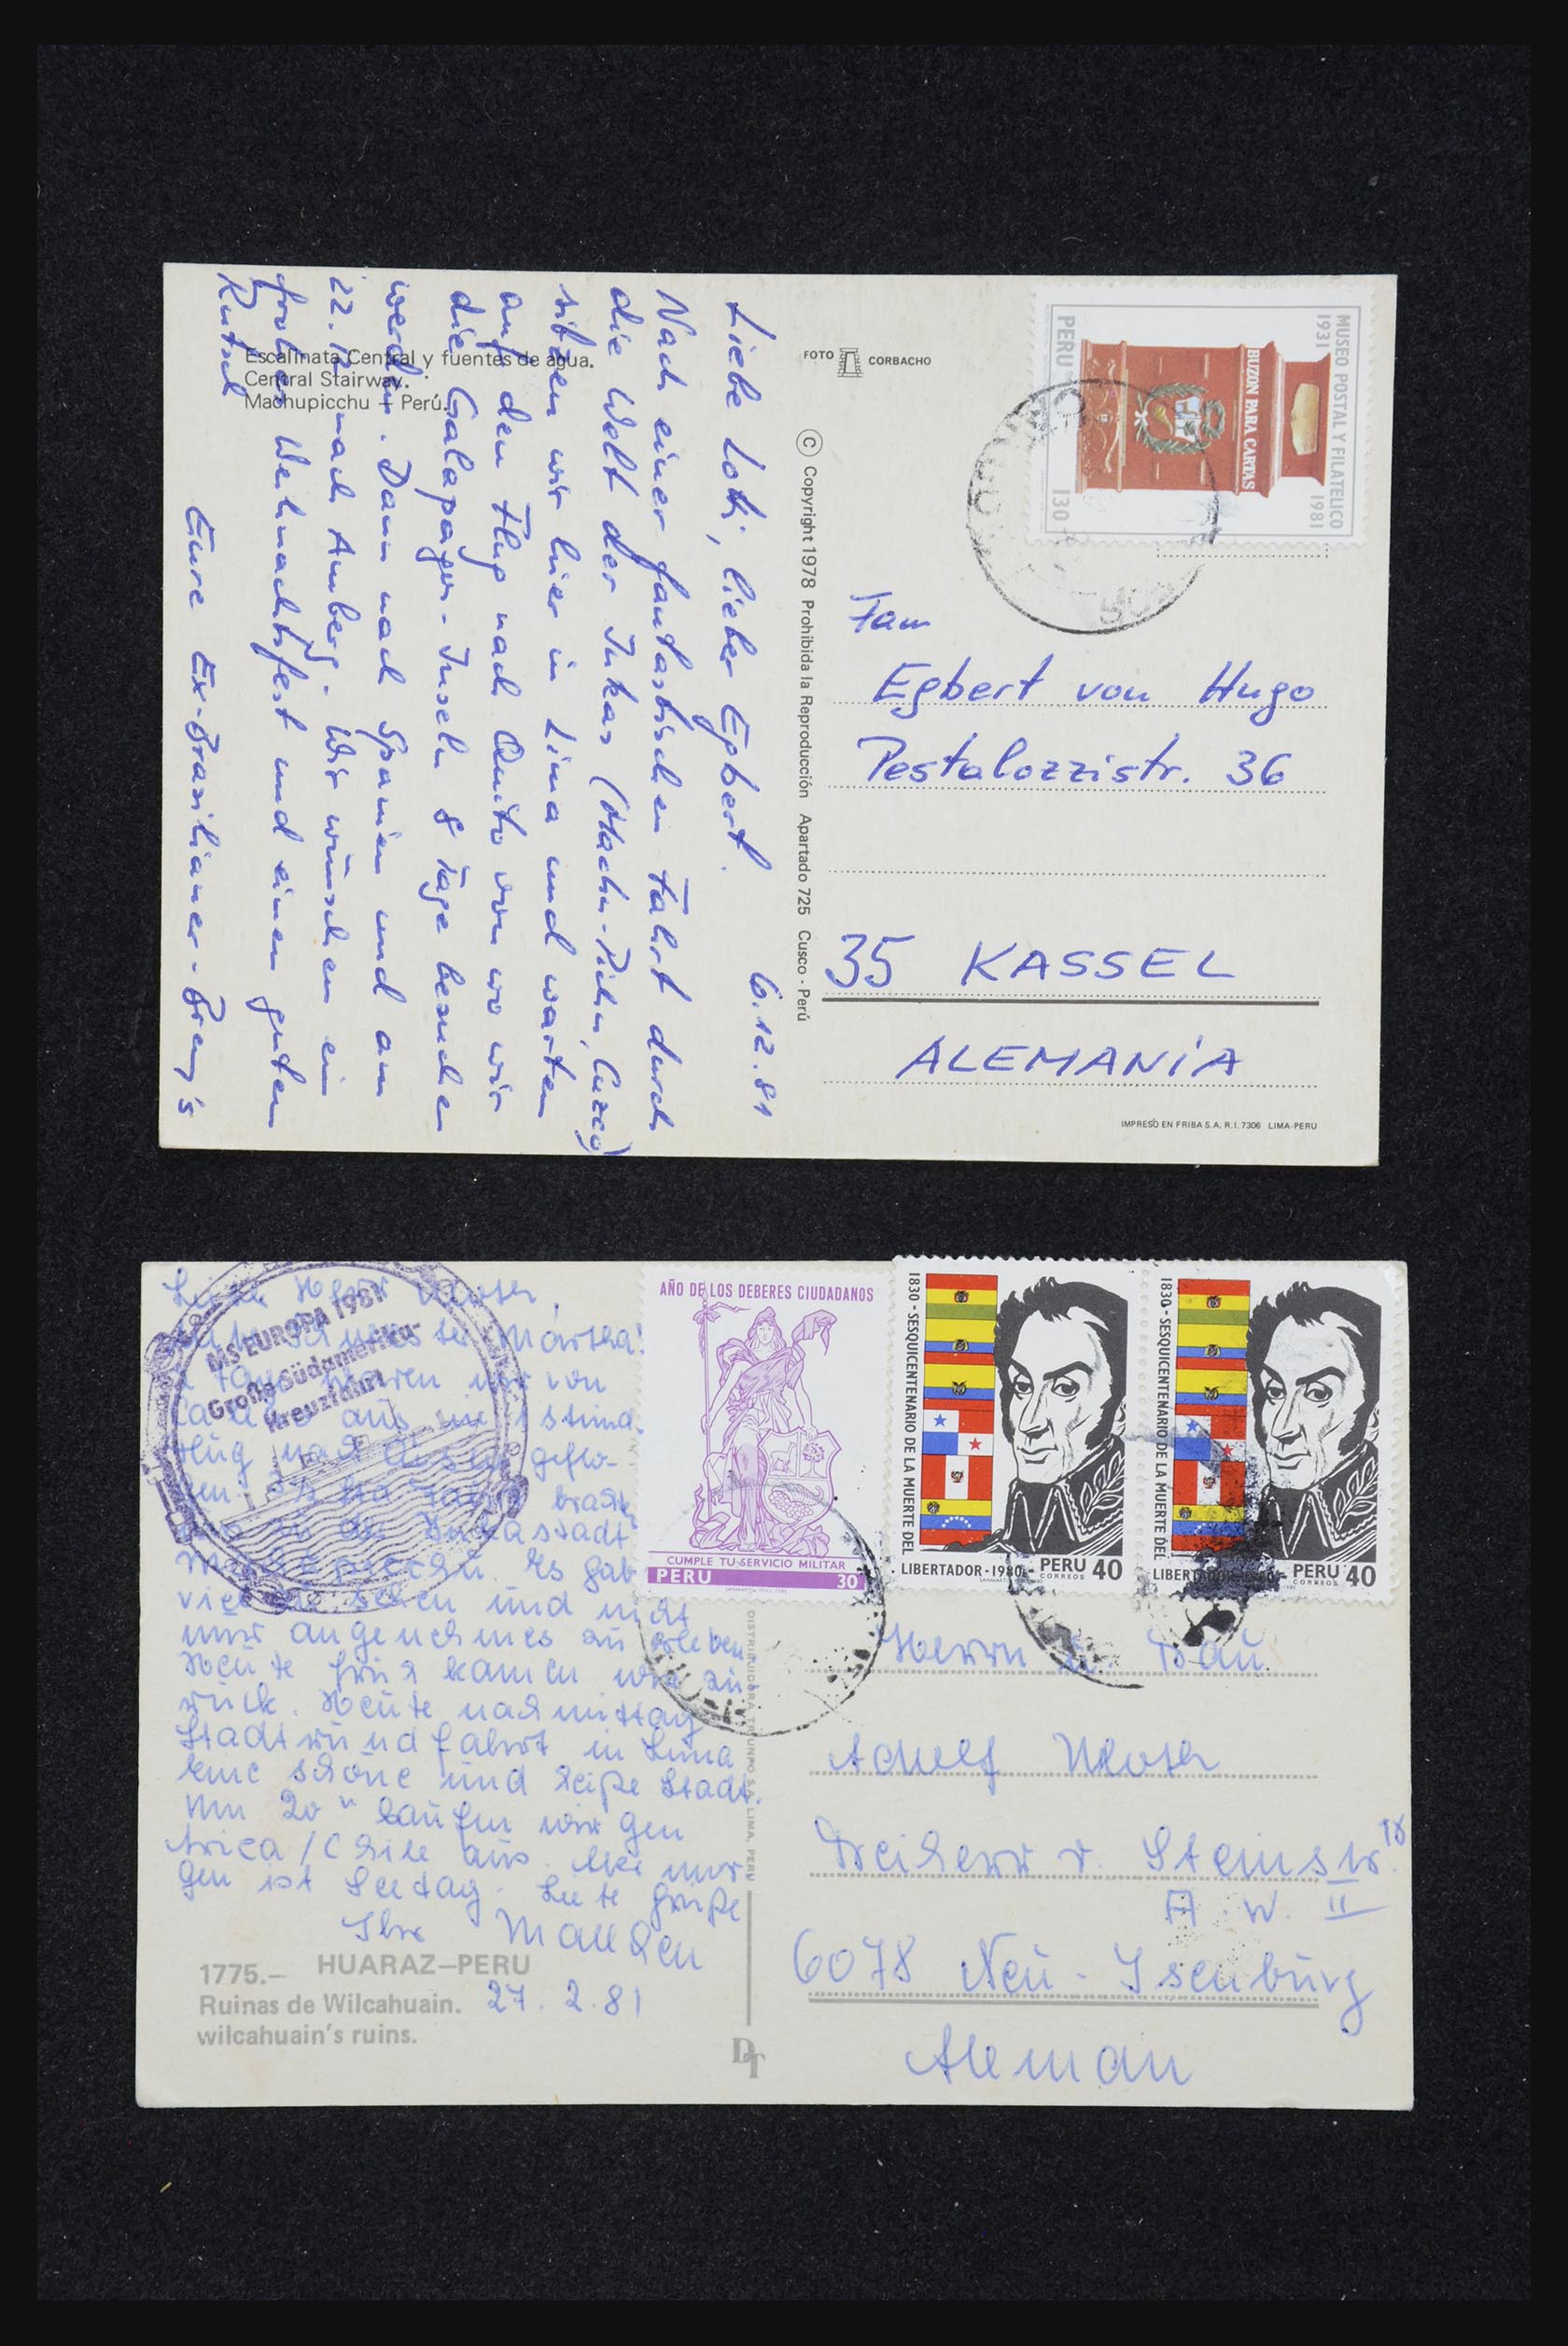 Escalinata Central y fuentes de agua.
Central Stairway.
Machupicchu – Perú.
FOTO CORBACHO
© Copyright 1978 Prohibida la Reproducción Apartado 725 Cusco - Perú
6.12.81
Liebe Lotti, lieber Egbert.
Nach einer fantastischen Fahrt durch
die Welt der Inkas (Machu-Pichu, Cuzco)
sitzen wir hier in Lima und warten
auf den Flug nach Quito von wo wir
die Galapagos-Inseln 8 Tage besuchen
werden. Dann nach Spanien und am
22.12 nach Amberg. Wir wünschen ein
frohes Weihnachtsfest und einen guten
Rutsch
Eure Ex-Brasilianer-
MUSEO POSTAL Y FILATELICO
1931 1981
BUZON PARA CARTAS
PERU 130
Fam
Egbert von Hugo
Pestalozzistr. 36
35 KASSEL
ALEMANIA
IMPRESO EN FRIBA S.A. R.I. 7306 LIMA-PERU
MS EUROPA 1981
Große Südamerika-
Kreuzfahrt
AÑO DE LOS DEBERES CIUDADANOS
CUMPLE TU SERVICIO MILITAR
PERU 30
1830 - SESQUICENTENARIO DE LA MUERTE DEL
LIBERTADOR - 1980 - PERU 40
CORREOS
1830 - SESQUICENTENARIO DE LA MUERTE DEL
LIBERTADOR - PERU 40
CORREOS
Herr
Martha!
von
aus
Flug nach geflo-
gen. bracht
Inkastadt
Es gab
viel zu sehen und nicht
nur angenehmes zu erleben.
Heute früh kamen wir zu-
rück. Heute nachmittag
Stadtrundfahrt in Lima
eine schöne und heiße Stadt.
Um 20 h laufen wir gen
Arica/Chile aus. mor-
gen ist Seetag. Liebe Grüße
Ihr
1775.– HUARAZ–PERU
Ruinas de Wilcahuain.
wilcahuain's ruins.
27.2.81
DISTRIBUIDORA TRIUNFO S.A. LIMA, PERU
DT
Herrn u. Frau
Adolf
Freiherr v. Steinstr. 18
A. W. II
6078 Neu-Isenburg
Aleman